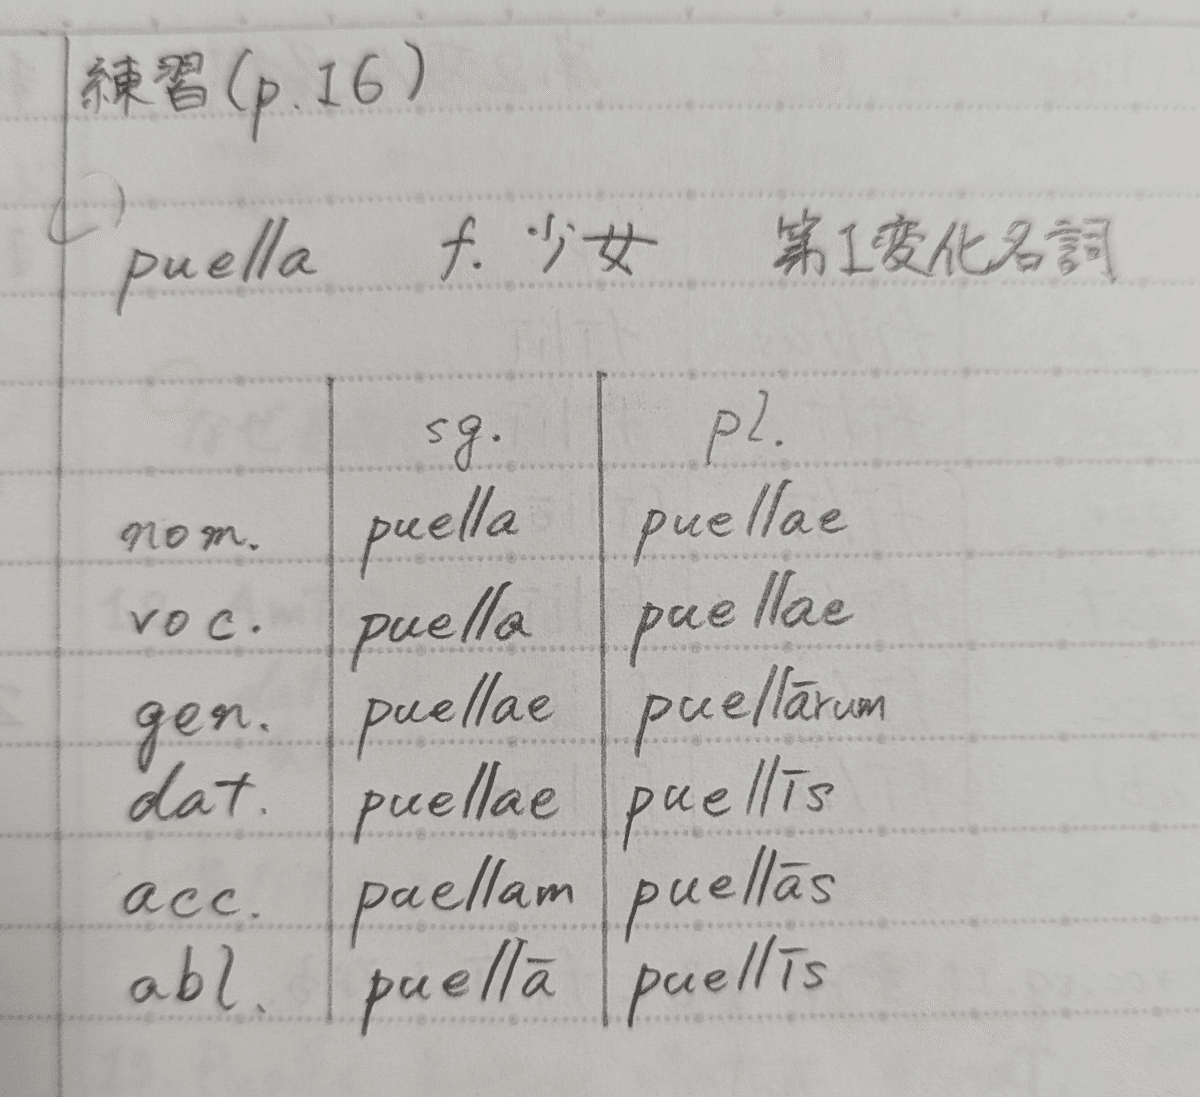 練習(p.16)
puella f. 少女 第1変化名詞
sg. pl.
nom. puella puellae
voc. puella puellae
gen. puellae puellārum
dat. puellae puellīs
acc. puellam puellās
abl. puellā puellīs